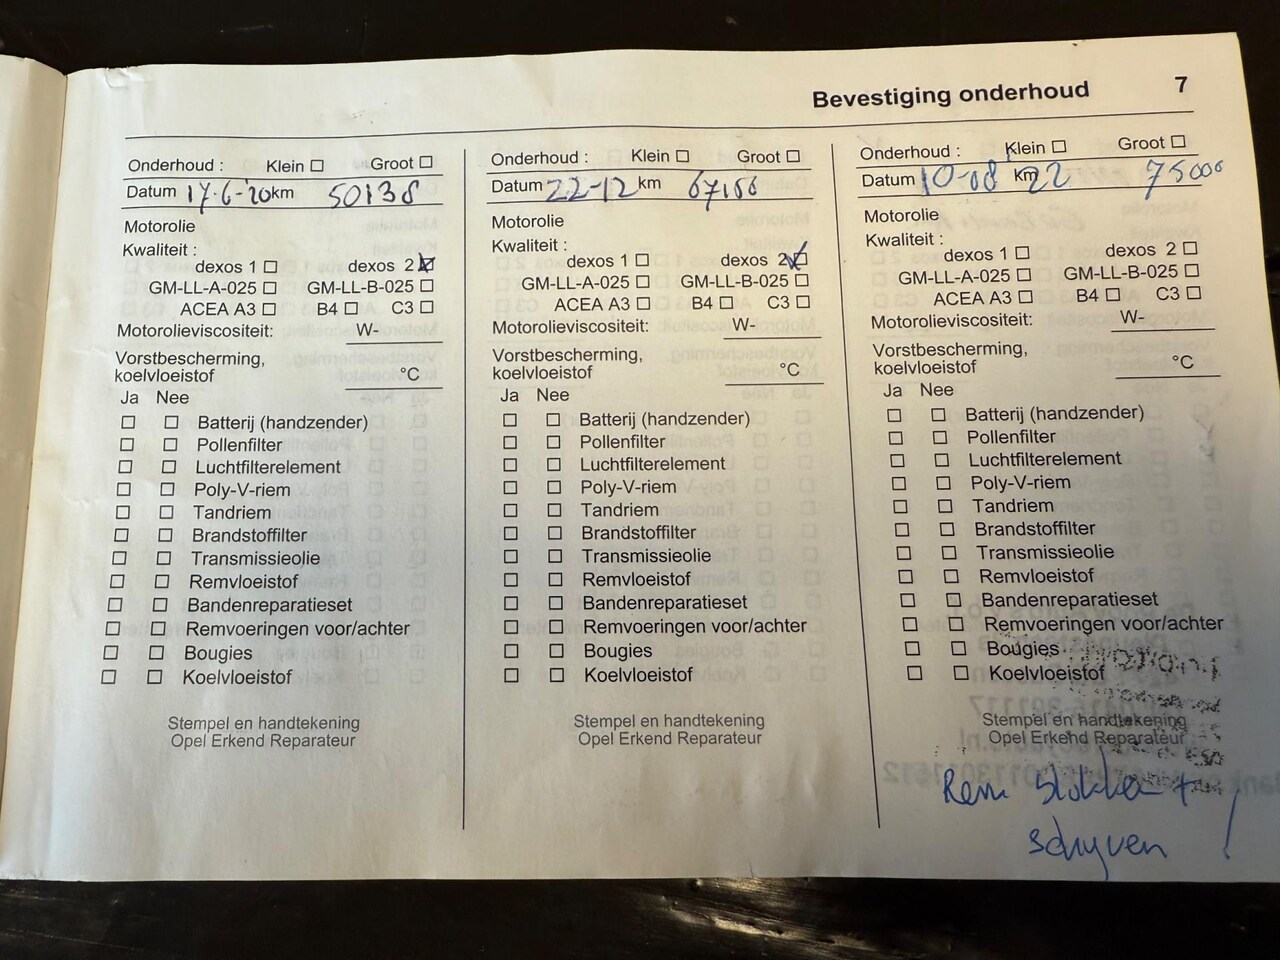 Bevestiging onderhoud 7
Onderhoud : Klein ☐ Groot ☐
Datum 17-6-20 km 50138
Motorolie
Kwaliteit :
dexos 1 ☐ dexos 2 ☑
GM-LL-A-025 ☐ GM-LL-B-025 ☐
ACEA A3 ☐ B4 ☐ C3 ☐
Motorolieviscositeit: W-
Vorstbescherming,
koelvloeistof °C
Ja Nee
☐ ☐ Batterij (handzender)
☐ ☐ Pollenfilter
☐ ☐ Luchtfilterelement
☐ ☐ Poly-V-riem
☐ ☐ Tandriem
☐ ☐ Brandstoffilter
☐ ☐ Transmissieolie
☐ ☐ Remvloeistof
☐ ☐ Bandenreparatieset
☐ ☐ Remvoeringen voor/achter
☐ ☐ Bougies
☐ ☐ Koelvloeistof
Stempel en handtekening
Opel Erkend Reparateur
Onderhoud : Klein ☐ Groot ☐
Datum 22-12 km
Motorolie
Kwaliteit :
dexos 1 ☐ dexos 2 ☑
GM-LL-A-025 ☐ GM-LL-B-025 ☐
ACEA A3 ☐ B4 ☐ C3 ☐
Motorolieviscositeit: W-
Vorstbescherming,
koelvloeistof °C
Ja Nee
☐ ☐ Batterij (handzender)
☐ ☐ Pollenfilter
☐ ☐ Luchtfilterelement
☐ ☐ Poly-V-riem
☐ ☐ Tandriem
☐ ☐ Brandstoffilter
☐ ☐ Transmissieolie
☐ ☐ Remvloeistof
☐ ☐ Bandenreparatieset
☐ ☐ Remvoeringen voor/achter
☐ ☐ Bougies
☐ ☐ Koelvloeistof
Stempel en handtekening
Opel Erkend Reparateur
Onderhoud : Klein ☐ Groot ☐
Datum 10-08 km 22 75000
Motorolie
Kwaliteit :
dexos 1 ☐ dexos 2 ☐
GM-LL-A-025 ☐ GM-LL-B-025 ☐
ACEA A3 ☐ B4 ☐ C3 ☐
Motorolieviscositeit: W-
Vorstbescherming,
koelvloeistof °C
Ja Nee
☐ ☐ Batterij (handzender)
☐ ☐ Pollenfilter
☐ ☐ Luchtfilterelement
☐ ☐ Poly-V-riem
☐ ☐ Tandriem
☐ ☐ Brandstoffilter
☐ ☐ Transmissieolie
☐ ☐ Remvloeistof
☐ ☐ Bandenreparatieset
☐ ☐ Remvoeringen voor/achter
☐ ☐ Bougies
☐ ☐ Koelvloeistof
Stempel en handtekening
Opel Erkend Reparateur
Rem blokken +
schyven !